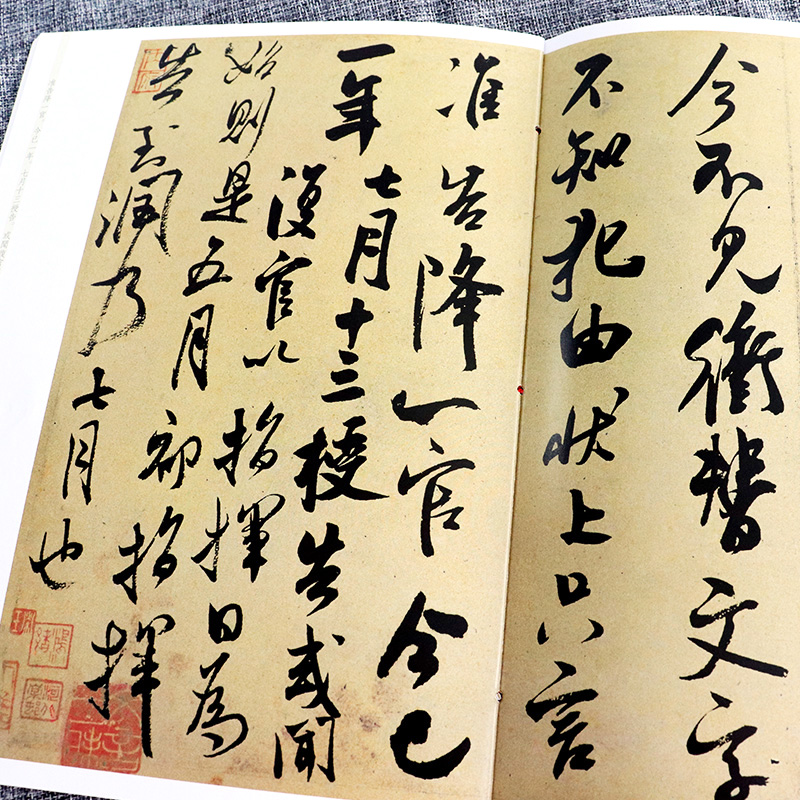 今不見衝替文字
不知犯由狀上只言
准告降一官今已
一年七月十三授告或聞
復官以指揮日為
始則是五月部指揮
告至潤乃七月也